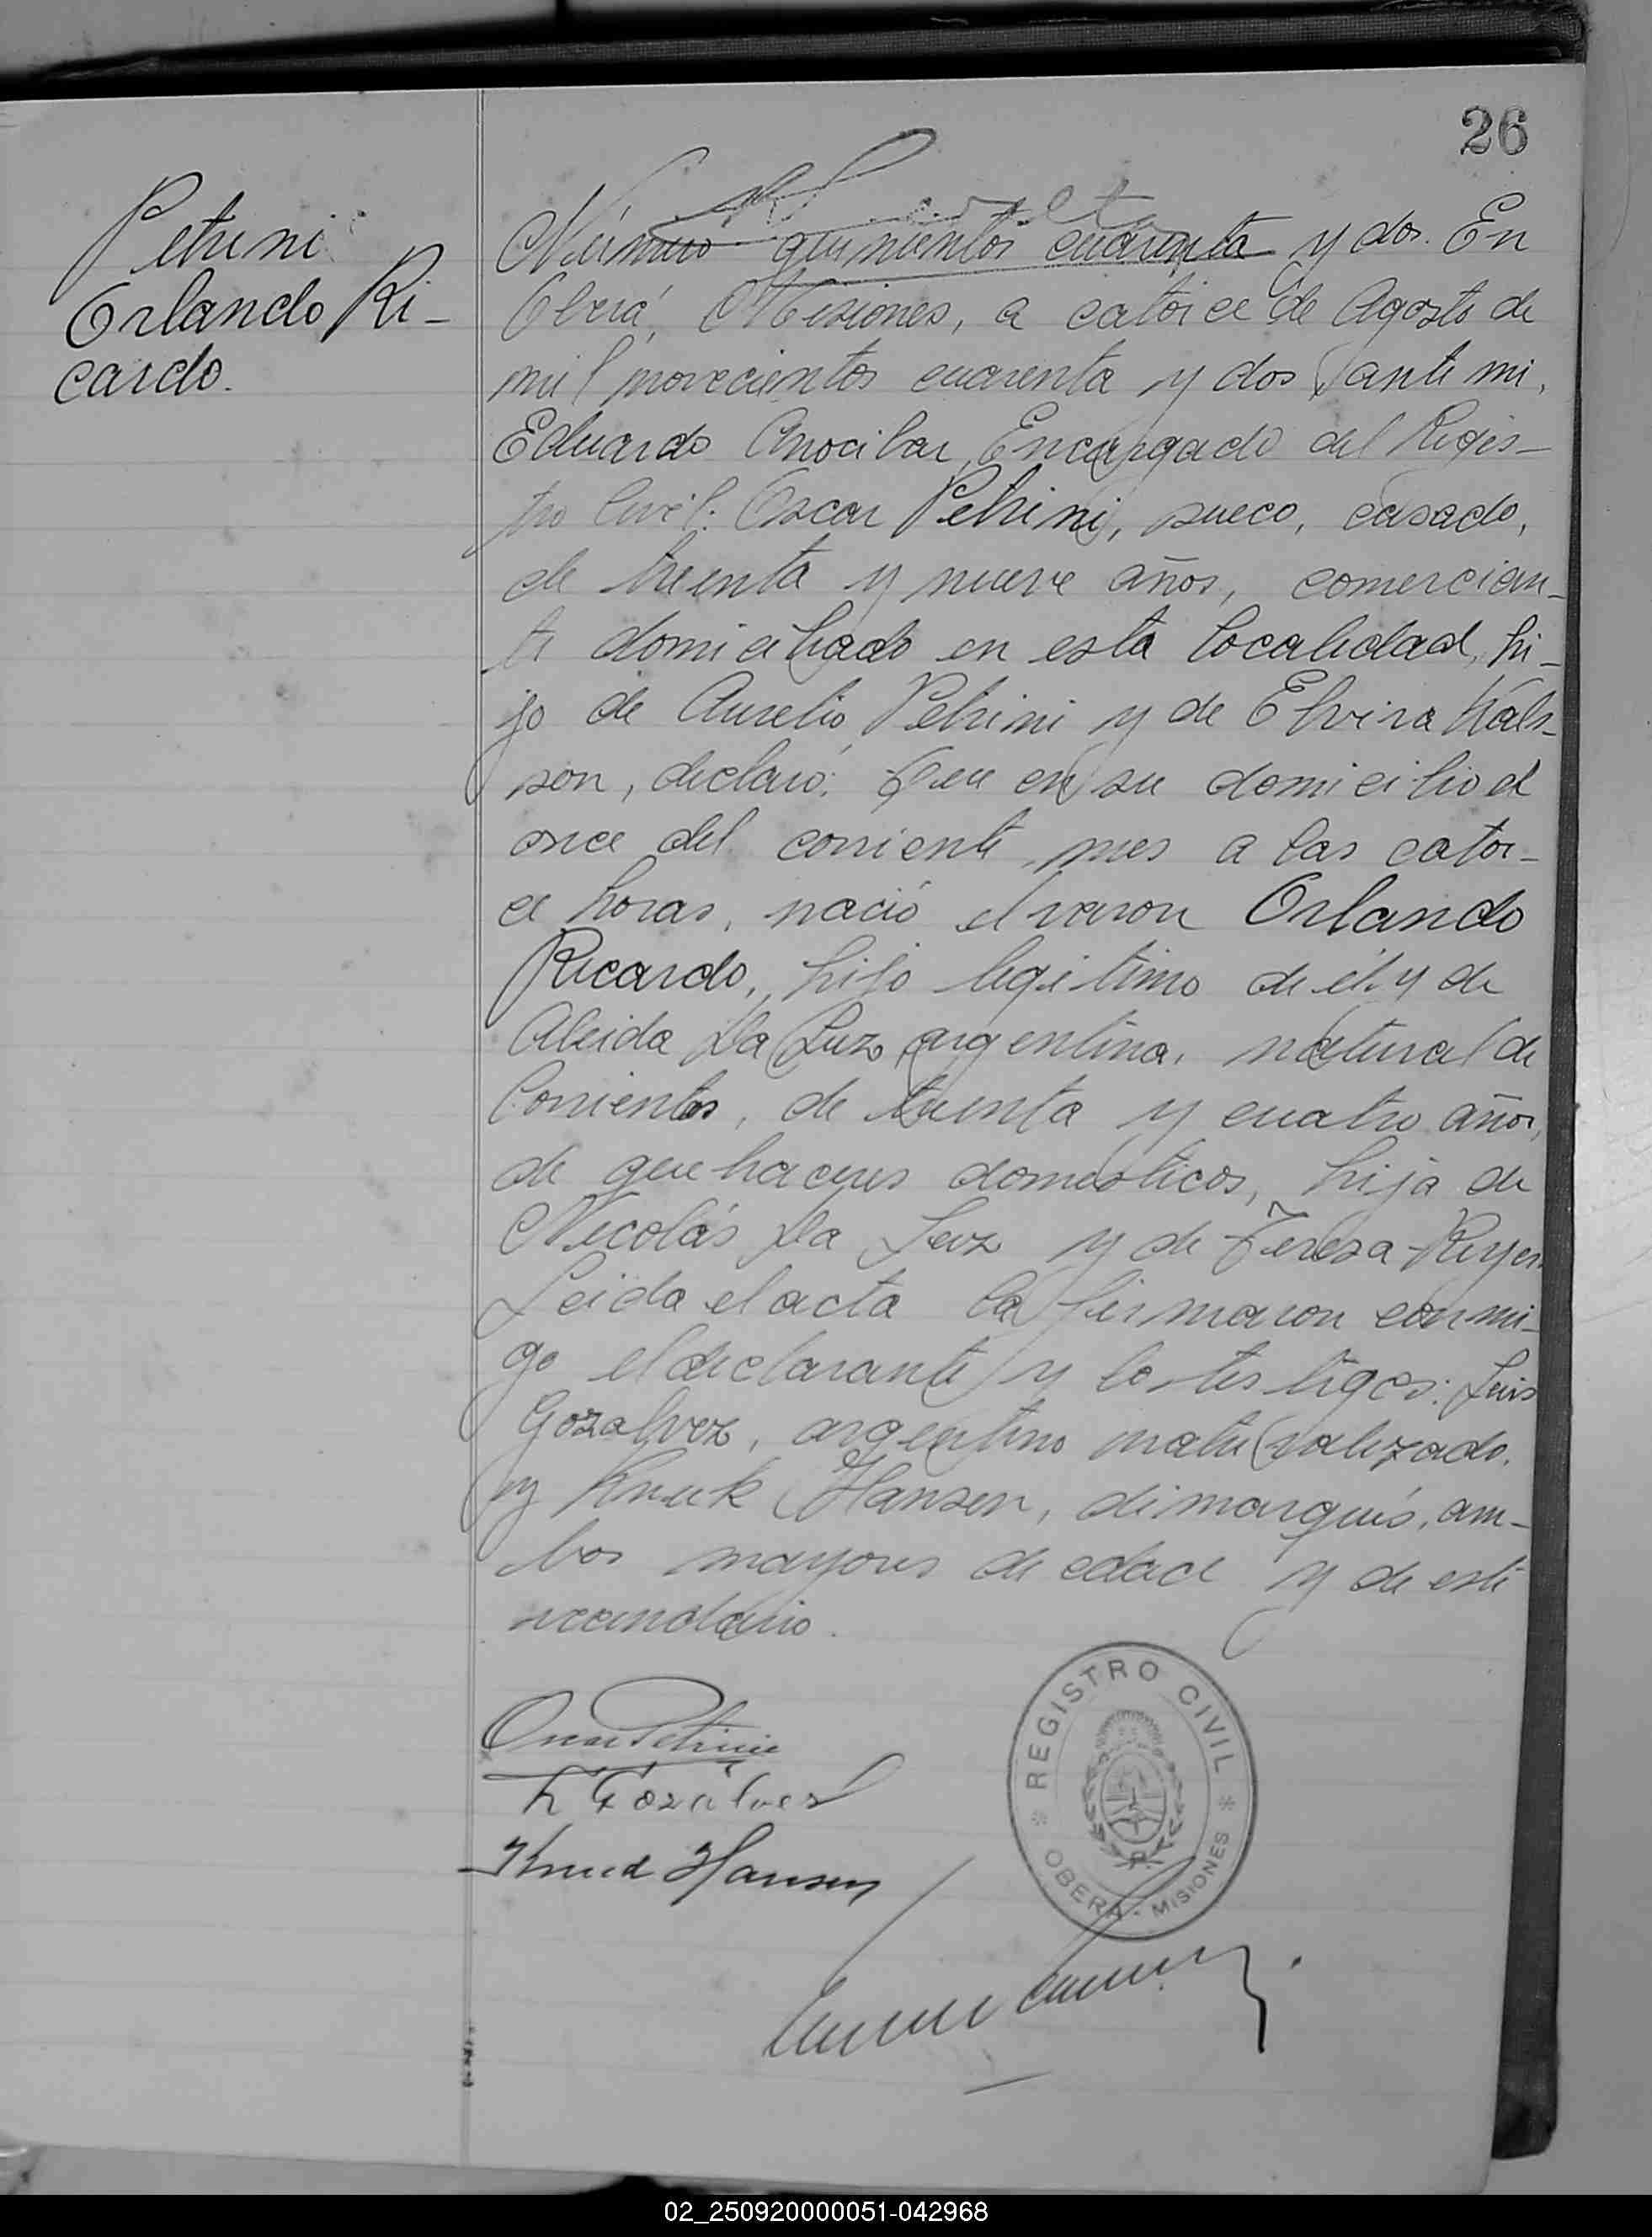 26
Petrini
Orlando Ri-
cardo.
Número quinientos cuarenta y dos. En
Oberá, Misiones, a catorce de Agosto de
mil novecientos cuarenta y dos ante mi,
Eduardo Encargado del Regis-
tro Civil: Oscar Petrini, sueco, casado,
de treinta y nueve años, comercian-
te domiciliado en esta localidad, hi-
jo de Aurelio Petrini y de Elvira Kals-
son, declaró: Que en su domicilio el
once del corriente mes a las cator-
ce horas, nació el varon Orlando
Ricardo, hijo legitimo de él y de
Aleida Da Luz, argentina, natural de
Corrientes, de treinta y cuatro años,
de quehaceres domesticos, hija de
Nicolás Da Luz y de Tereza Reyes.
Leida el acta la firmaron conmi-
go el declarante y los testigos: Luis
Gozalvez, argentino naturalizado,
y Knuk Hansen, dimarqués, am-
bos mayores de edad y de este
vecindario.
Oscar Petrini
L Gozálvez
Knud Hansen
REGISTRO CIVIL
OBERA - MISIONES
02_250920000051-042968